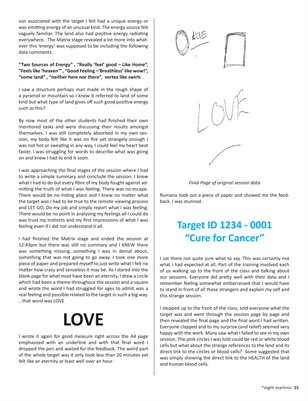 son associated with the target I felt had a unique energy or
was emitting energy of an unusual kind. The energy source felt
vaguely familiar. The land also had positive energy radiating
everywhere. The Matrix stage revealed a lot more into what-
ever this 'energy' was supposed to be including the following
data comments:
"Two Sources of Energy" , "Really 'feel' good – Like Home",
"Feels like 'heaven'" , "Good Feeling –'Breathless' like wow!",
"some land" , "neither here nor there", vortex like swirls
I saw a structure perhaps man made in the rough shape of
a pyramid or mountain so I knew it referred to land of some
kind but what type of land gives off such good positive energy
such as this?
By now most of the other students had finished their own
monitored tasks and were discussing their results amongst
themselves. I was still completely absorbed in my own ses-
sion, my body felt like it was on fire yet strangely enough I
was not hot or sweating in any way, I could feel my heart beat
faster, I was struggling for words to describe what was going
on and knew I had to end it soon.
I was approaching the final stages of the session where I had
to write a simple summary and conclude the session. I knew
what I had to do but every fibre of my body fought against ad-
mitting the truth of what I was feeling. There was no escape.
There would be no hiding place and I knew no matter what
the target was I had to be true to the remote viewing process
and LET GO; Do my job and simply report what I was feeling.
There would be no point in analysing my feelings all I could do
was trust my instincts and my first impressions of what I was
feeling even if I did not understand it all.
I had finished the Matrix stage and ended the session at
12:43pm but there was still no summary and I KNEW there
was something missing..something I was in denial about,
something that was not going to go away. I took one more
piece of paper and prepared myself to just write what I felt no
matter how crazy and senseless it may be. As I stared into the
blank page for what must have been an eternity, I drew a circle
which had been a theme throughout the session and a square
and wrote the word I had struggled for ages to admit was a
real feeling and possible related to the target in such a big way.
…that word was LOVE
LOVE
I wrote it again for good measure right across the A4 page
emphasized with an underline and with that final word I
dropped the pen and waited for the feedback. The weird part
of the whole target was it only took less than 20 minutes yet
felt like an eternity at least well over an hour
LOVE
LOVE
Final Page of original session data
Rumana took out a piece of paper and showed me the feed-
back. I was stunned.
Target ID 1234 - 0001
"Cure for Cancer"
I sat there not quite sure what to say. This was certainly not
what I had expected at all. Part of the training involved each
of us walking up to the front of the class and talking about
our sessions. Everyone did pretty well with their data and I
remember feeling somewhat embarrassed that I would have
to stand in front of all these strangers and explain my self and
this strange session.
I stepped up to the front of the class, told everyone what the
target was and went through the session page by page and
then revealed the final page and the final word I had written.
Everyone clapped and to my surprise (and relief) seemed very
happy with the work. Many saw what I failed to see in my own
session. The pink circles I was told could be red or white blood
cells but what about the strange references to the land and its
direct link to the circles or blood cells? Some suggested that
was simply showing the direct link to the HEALTH of the land
and human blood cells.
*eight martinis 15